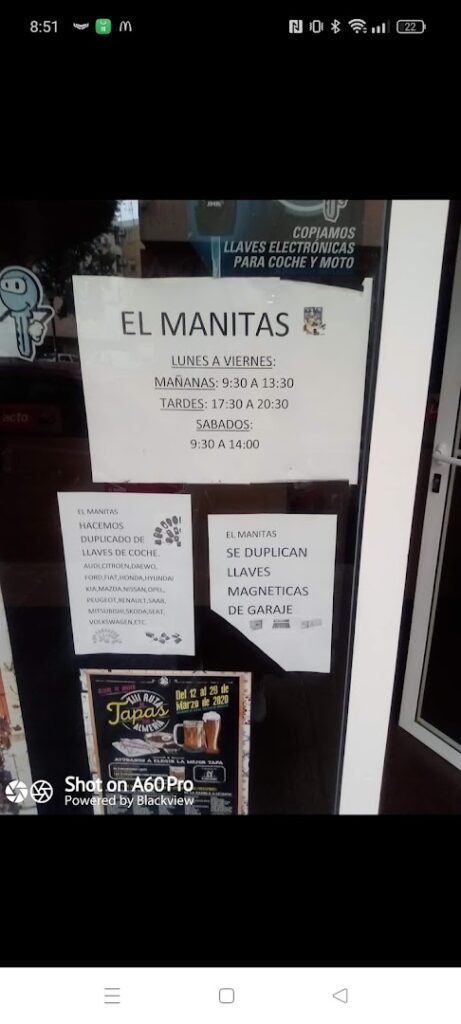 8:51
22
COPIAMOS
LLAVES ELECTRÓNICAS
PARA COCHE Y MOTO
EL MANITAS
LUNES A VIERNES:
MAÑANAS: 9:30 A 13:30
TARDES: 17:30 A 20:30
SABADOS:
9:30 A 14:00
acto
EL MANITAS
HACEMOS
DUPLICADO DE
LLAVES DE COCHE.
AUDI,CITROEN,DAEWO,
FORD,FIAT,HONDA,HYUNDAI
KIA,MAZDA,NISSAN,OPEL,
PEUGEOT,RENAULT,SAAB,
MITSUBISHI,SKODA,SEAT,
VOLKSWAGEN,ETC.
EL MANITAS
SE DUPLICAN
LLAVES
MAGNETICAS
DE GARAJE
XIII RUTA
Tapas
ALMERÍA
Del 12 al 29 de
Marzo de 2020
AYÚDANOS A ELEGIR LA MEJOR TAPA
Shot on A60Pro
Powered by Blackview